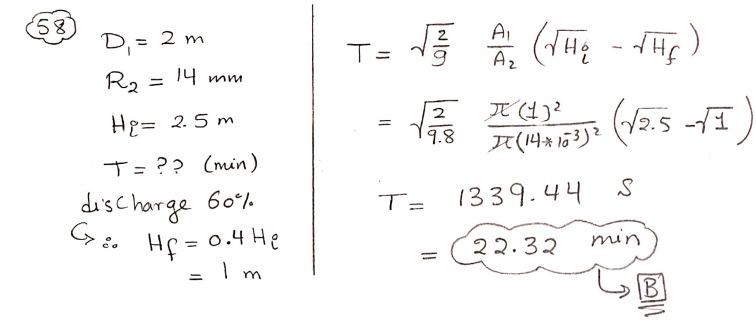 58
D₁ = 2 m
R₂ = 14 mm
Hi = 2.5 m
T = ?? (min)
discharge 60%
↳ ∴ Hf = 0.4 Hi
= 1 m
T = √(2/g) A₁/A₂ (√Hi - √Hf)
= √(2/9.8) π(1)²/π(14*10⁻³)² (√2.5 - √1)
T = 1339.44 S
= 22.32 min
↳ B